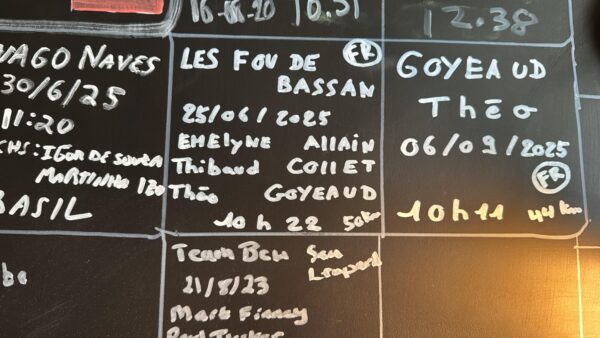 16-08-20 10.51
12.38
NAVES
30/6/25
11:20
BASIL
LES FOU DE FR
BASSAN
25/06/2025
EMELYNE ALLAIN
Thibaud COLLET
Théo GOYEAUD
10 h 22 50km
GOYEAUD
Théo
06/09/2025
FR
10h11 44 km
Team Ben Sea
Leopard
21/8/23
Mark Finney